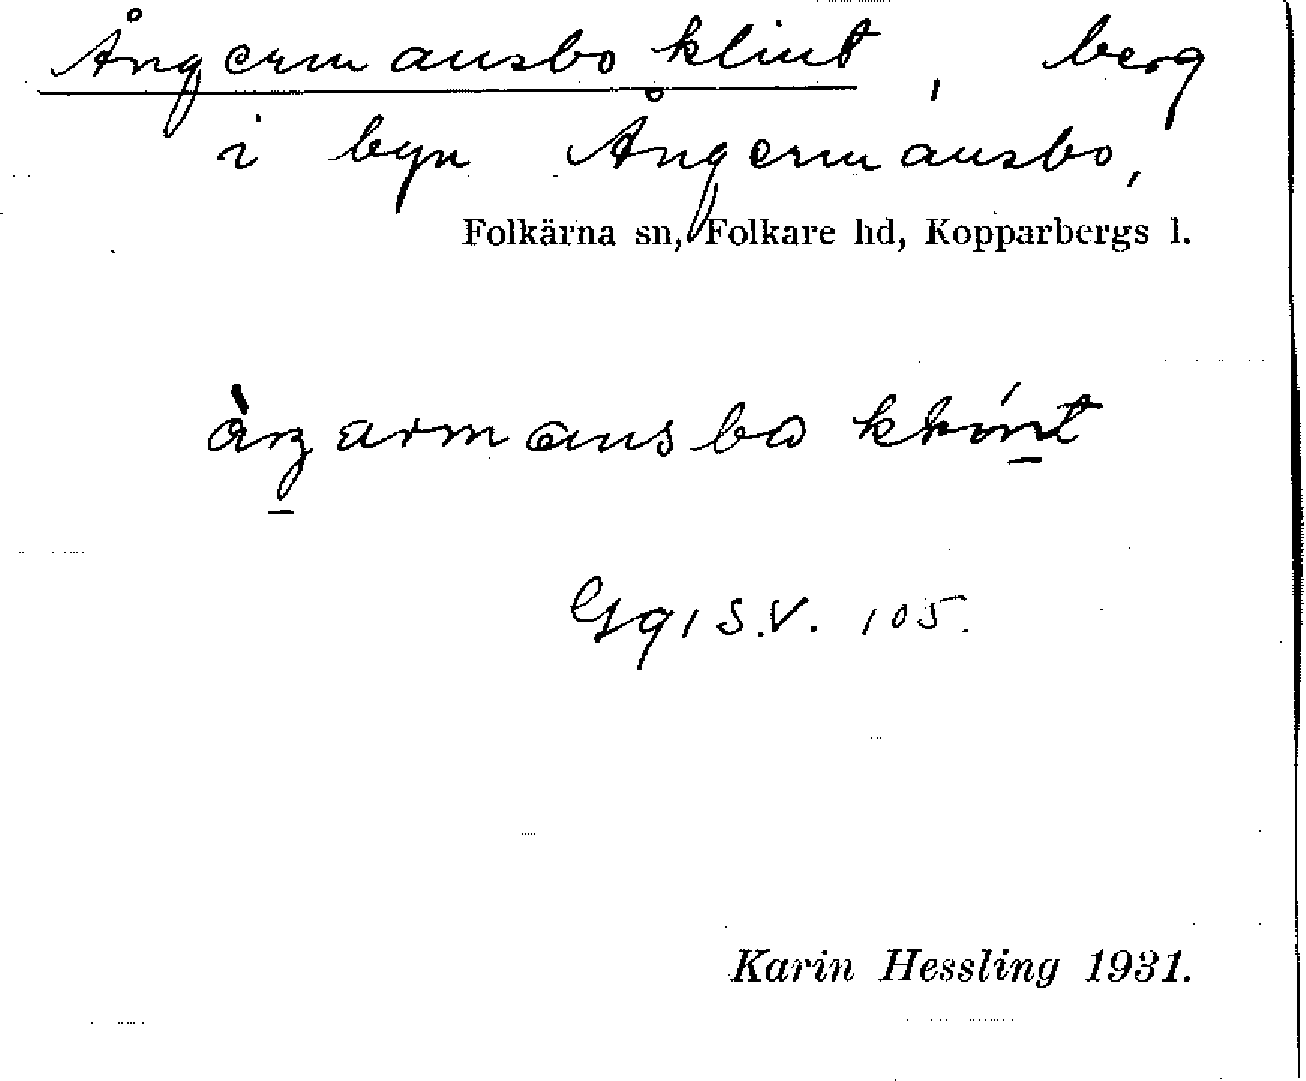 Ångermansbo klint, berg
i byn Ångermansbo,
Folkärna sn, Folkare hd, Kopparbergs l.
Gg, S.V. 105.
Karin Hessling 1931.